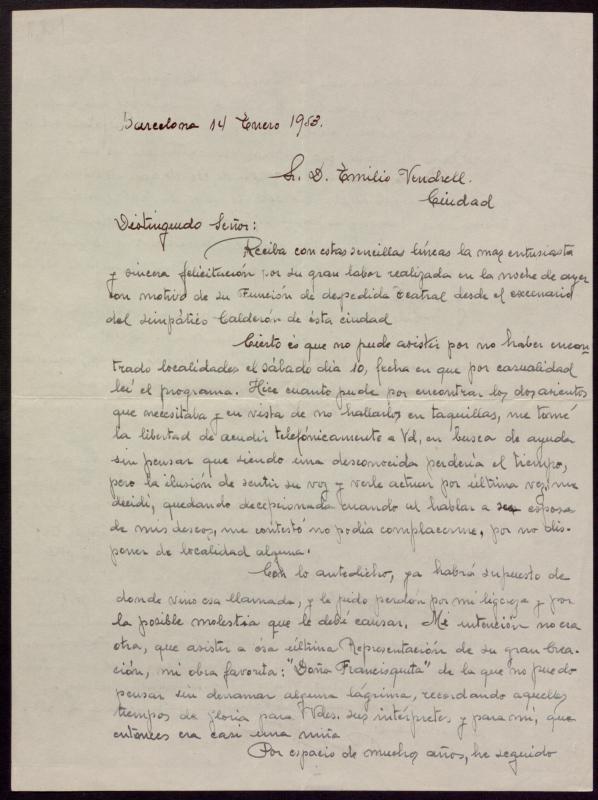 Barcelona 14 Enero 1953.
Sr. D. Emilio Vendrell.
Ciudad
Distinguido Señor:
Reciba con estas sencillas líneas la mas entusiasta
y sincera felicitución por su gran labor realizada en la noche de ayer
con motivo de su Función de despedida teatral desde el escenario
del simpático Calderón de ésta ciudad
Cierto és que no pude asistir por no haber encon-
trado localidades el sábado dia 10, fecha en que por casualidad
leí el programa. Hice cuanto pude por encontrar los dos asientos
que necesitaba y en vista de no hallarlos en taquillas, me tomé
la libertad de acudir telefónicamente a Vd, en busca de ayuda
sin pensar que siendo una desconocida perdería el tiempo,
pero la ilusión de sentir su voz y verle actuar por última vez, me
decidí, quedando decepcionada cuando al hablar a su esposa
de mis deseos, me contestó no podía complacerme, por no dis-
poner de localidad alguna.
Con lo antedicho, ya habrá supuesto de
donde vino esa llamada, y le pido perdón por mi ligereza y por
la posible molestia que le debí causar. Mi intención no era
otra, que asistir a ésa última Representación de su gran Crea-
ción, mi obra favorita: "Doña Francisquita" de la que no puedo
pensar sin derramar alguna lágrima, recordando aquellos
tiempos de gloria para VVdes. sus intérpretes y para mí, que
entonces era casi una niña
Por espacio de muchos años, he seguido